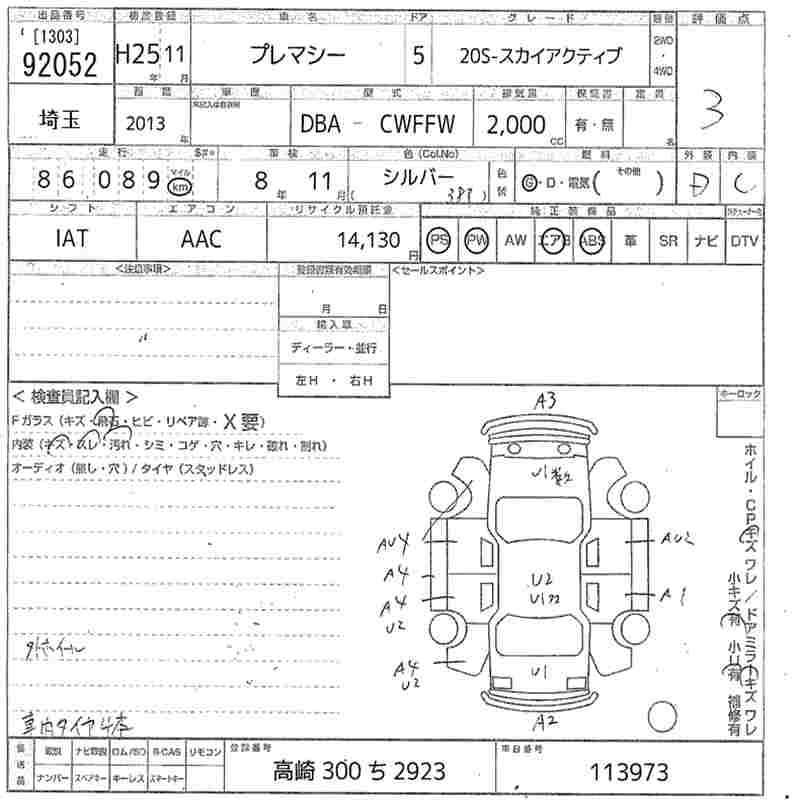 出品番号 初度登録 車名 ドア グレード 駆動 評価点
[1303]
92052 H25年 11月 プレマシー 5 20S-スカイアクティブ 2WD・4WD 3
首都 車歴 型式 排気量 保証書 定員
埼玉 2013年 DBA - CWFFW 2,000cc 有・無 名
走行 車検 色(Col.No) 燃料 外装 内装
86089 マイル km 8年 11月 シルバー (38P) 色替 G・D・電気( その他 ) D C
シフト エアコン リサイクル預託金 純正装備品
IAT AAC 14,130円 PS PW AW エアB ABS 革 SR ナビ DTV
<注意事項> 登録書類有効期限 <セールスポイント>
月 日
〃 輸入車
ディーラー・並行
左H ・ 右H
<検査員記入欄> ホーロック
Fガラス (キズ・飛石・ヒビ・リペア跡・X要)
内装 (キズ・スレ・汚れ・シミ・コゲ・穴・キレ・破れ・割れ)
オーディオ (無し・穴) / タイヤ (スタッドレス)
A3
U1
AU4 AU2
A4
A4 A1
U2
U2
U1
A4
U2
U1
A2
ホイル・CPキズ ワレ / ドアミラーキズ ワレ
小キズ有 小U有 補修有
外ホイール
車内タイヤ4本
後送品 取説 ナビ取説 ロム/SD B-CAS リモコン 登録番号 車台番号
ナンバー スペアキー キーレス スマートキー 高崎 300 ち 2923 113973